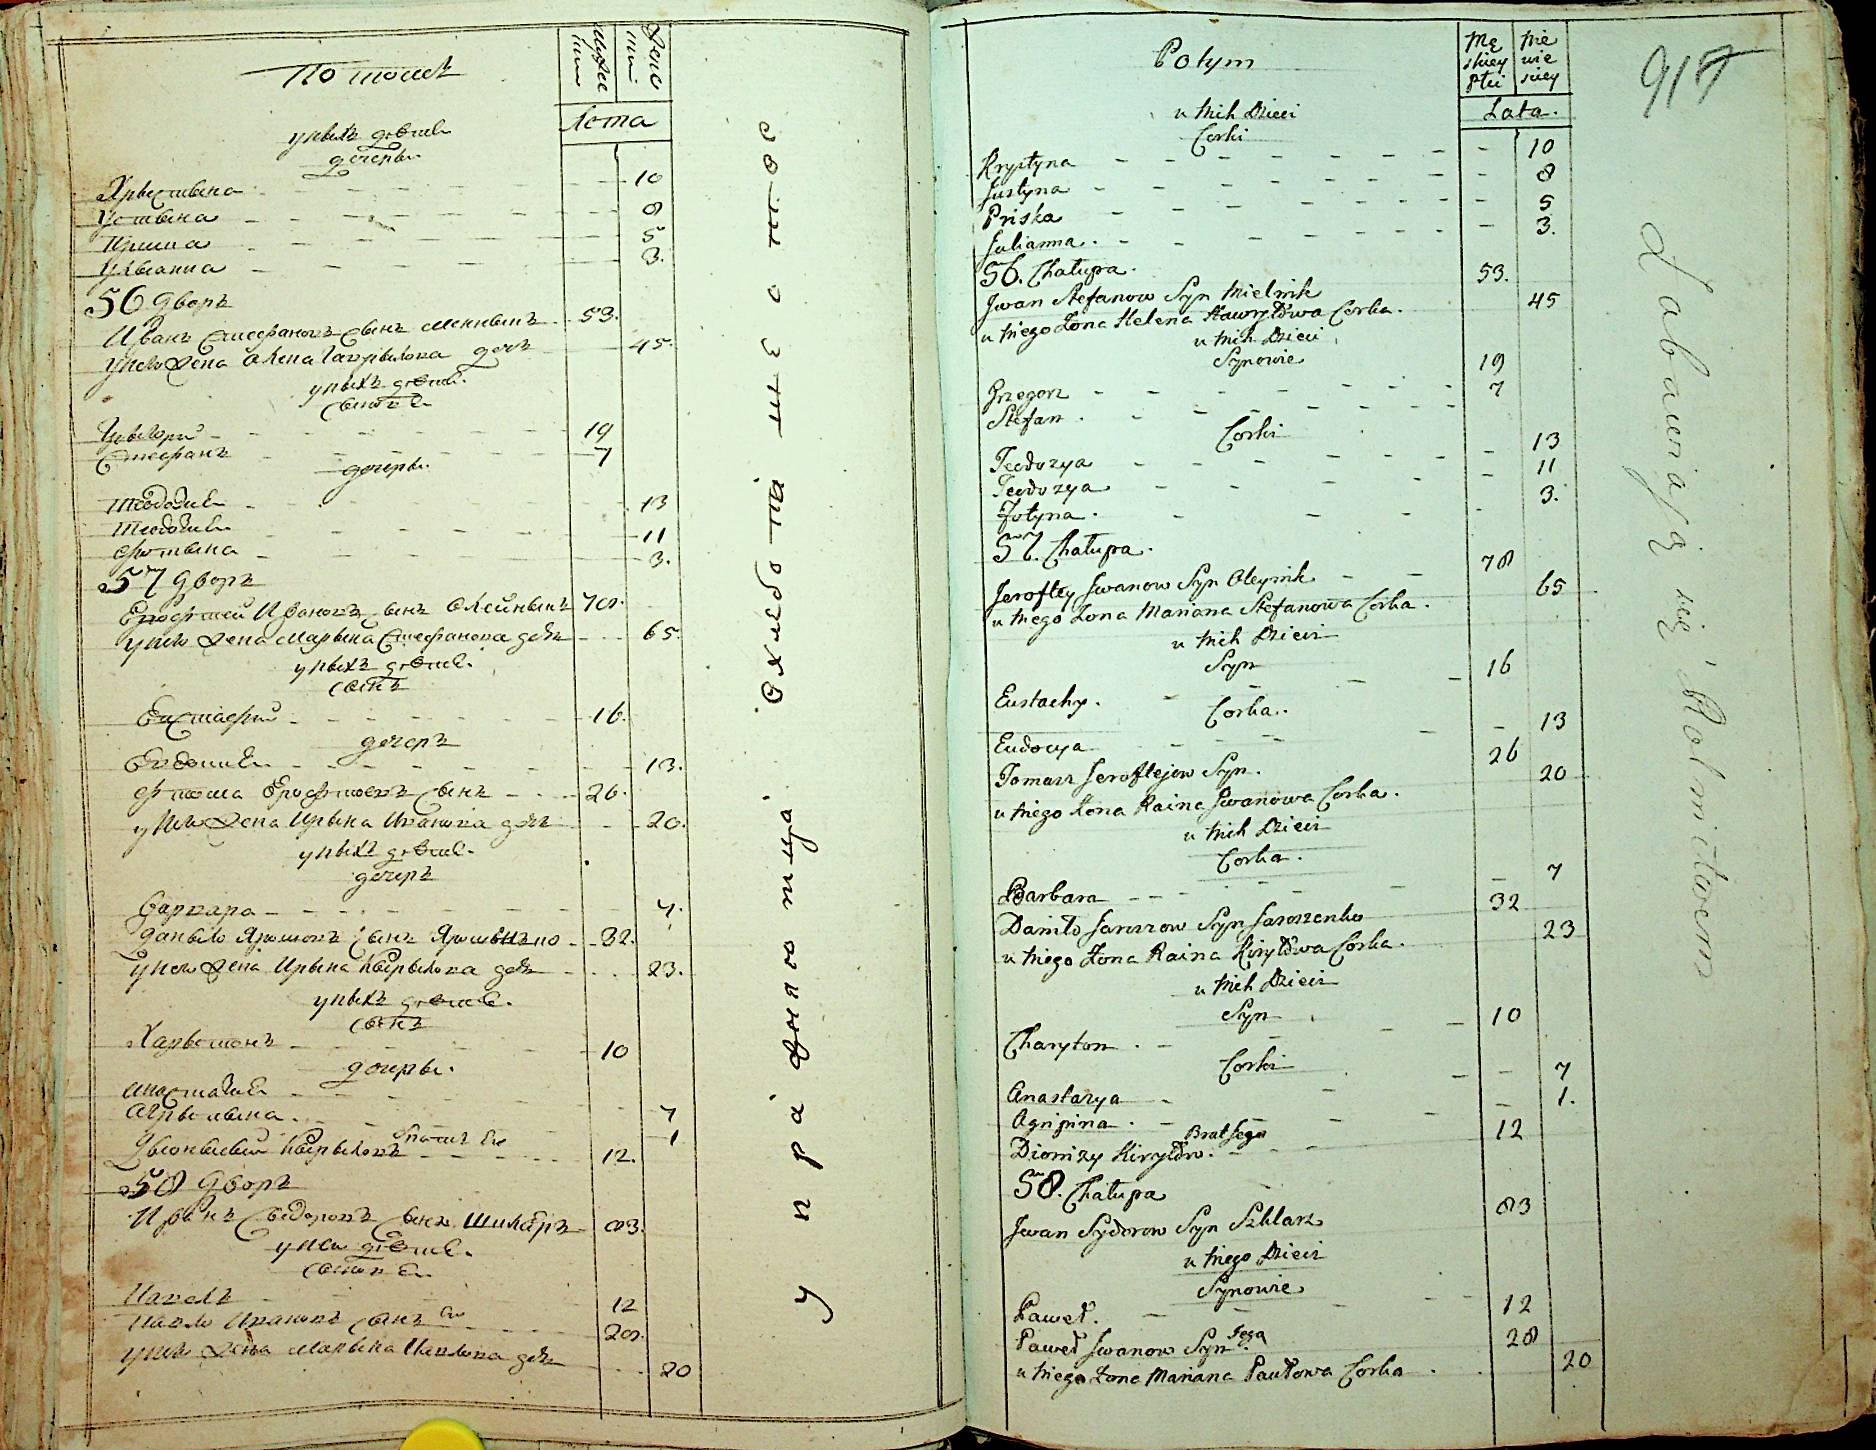 По томъ
Муже
ским
Жен
ским
Лѣта
у ныхъ дѣтей
дочеры
Хрыстына 10
Устына 8
Приска 5
Улыанна 3.
56 Дворъ
Иванъ Стефановъ сынъ 53.
у него жена Олена Гаврылова дочъ 45.
у ныхъ дѣтей
сыновѣ
Грыгорий 19
Стефанъ 7
дочеры
Теодозия 13
Теодозия 11
Фотына 3.
57 Дворъ
Ерофтей Ивановъ сынъ Олейныкъ 78.
у него жена Марына Стефанова дочъ 65.
у ныхъ дѣтей
сынъ
Евстафий 16.
дочеръ
Евдокия 13.
Фтома Ерофтеевъ сынъ 26.
у него жена Ирына Иванова дочъ 20.
у ныхъ дѣтей
дочеръ
Варвара 7.
Даныло Ярошовъ сынъ Ярошенко 32.
у него жена Ирына Кырылова дочъ 23.
у ныхъ дѣтей
сынъ
Харытонъ 10
дочеры
Анастазия 7
Агрыпына 1
братъ его
Дыонызий Кырыловъ 12.
58 Дворъ
Иванъ Сыдоровъ сынъ Школяръ 83.
у него дѣтей
сыновѣ
Павелъ 12
Павло Ивановъ сынъ его 28.
у него жена Марына Павлова дочъ 20
Potym
Mę
skiey
Płci
Nie
wie
sciey
Lata.
u Nich Dzieci
Corki
Krystyna 10
Justyna 8
Priska 5
Julianna 3.
56. Chałupa.
Jwan Stefanow Syn Mielnik 53.
u Niego Zona Helena Hawryłowa Corka. 45
u Nich Dzieci
Synowie
Grzegorz 19
Stefan 7
Corki
Teodozya 13
Teodozya 11
Fotyna 3.
57. Chałupa.
Jeroftey Jwanow Syn Oleynik 78
u Niego Zona Maryana Stefanowa Corka. 65
u Nich Dzieci
Syn
Eustachy. 16
Corka.
Eudocya 13
Tomasz Jeroftejow Syn. 26
u Niego Zona Raina Jwanowa Corka. 20
u Nich Dzieci
Corka.
Barbara 7
Daniło Jaroszow Syn Jaroszenko 32
u Niego Zona Raina Kiryłowa Corka. 23
u Nich Dzieci
Syn
Charyton. 10
Corki
Anastazya 7
Agripina. 1.
Brat Jego
Dionizy Kiryłow. 12
58. Chałupa
Jwan Sydorow Syn Szklarz 83
u Niego Dzieci
Synowie
Paweł. 12
Paweł Jwanow Syn Jego 28
u Niego Zona Mariana Pawłowa Corka. 20
917